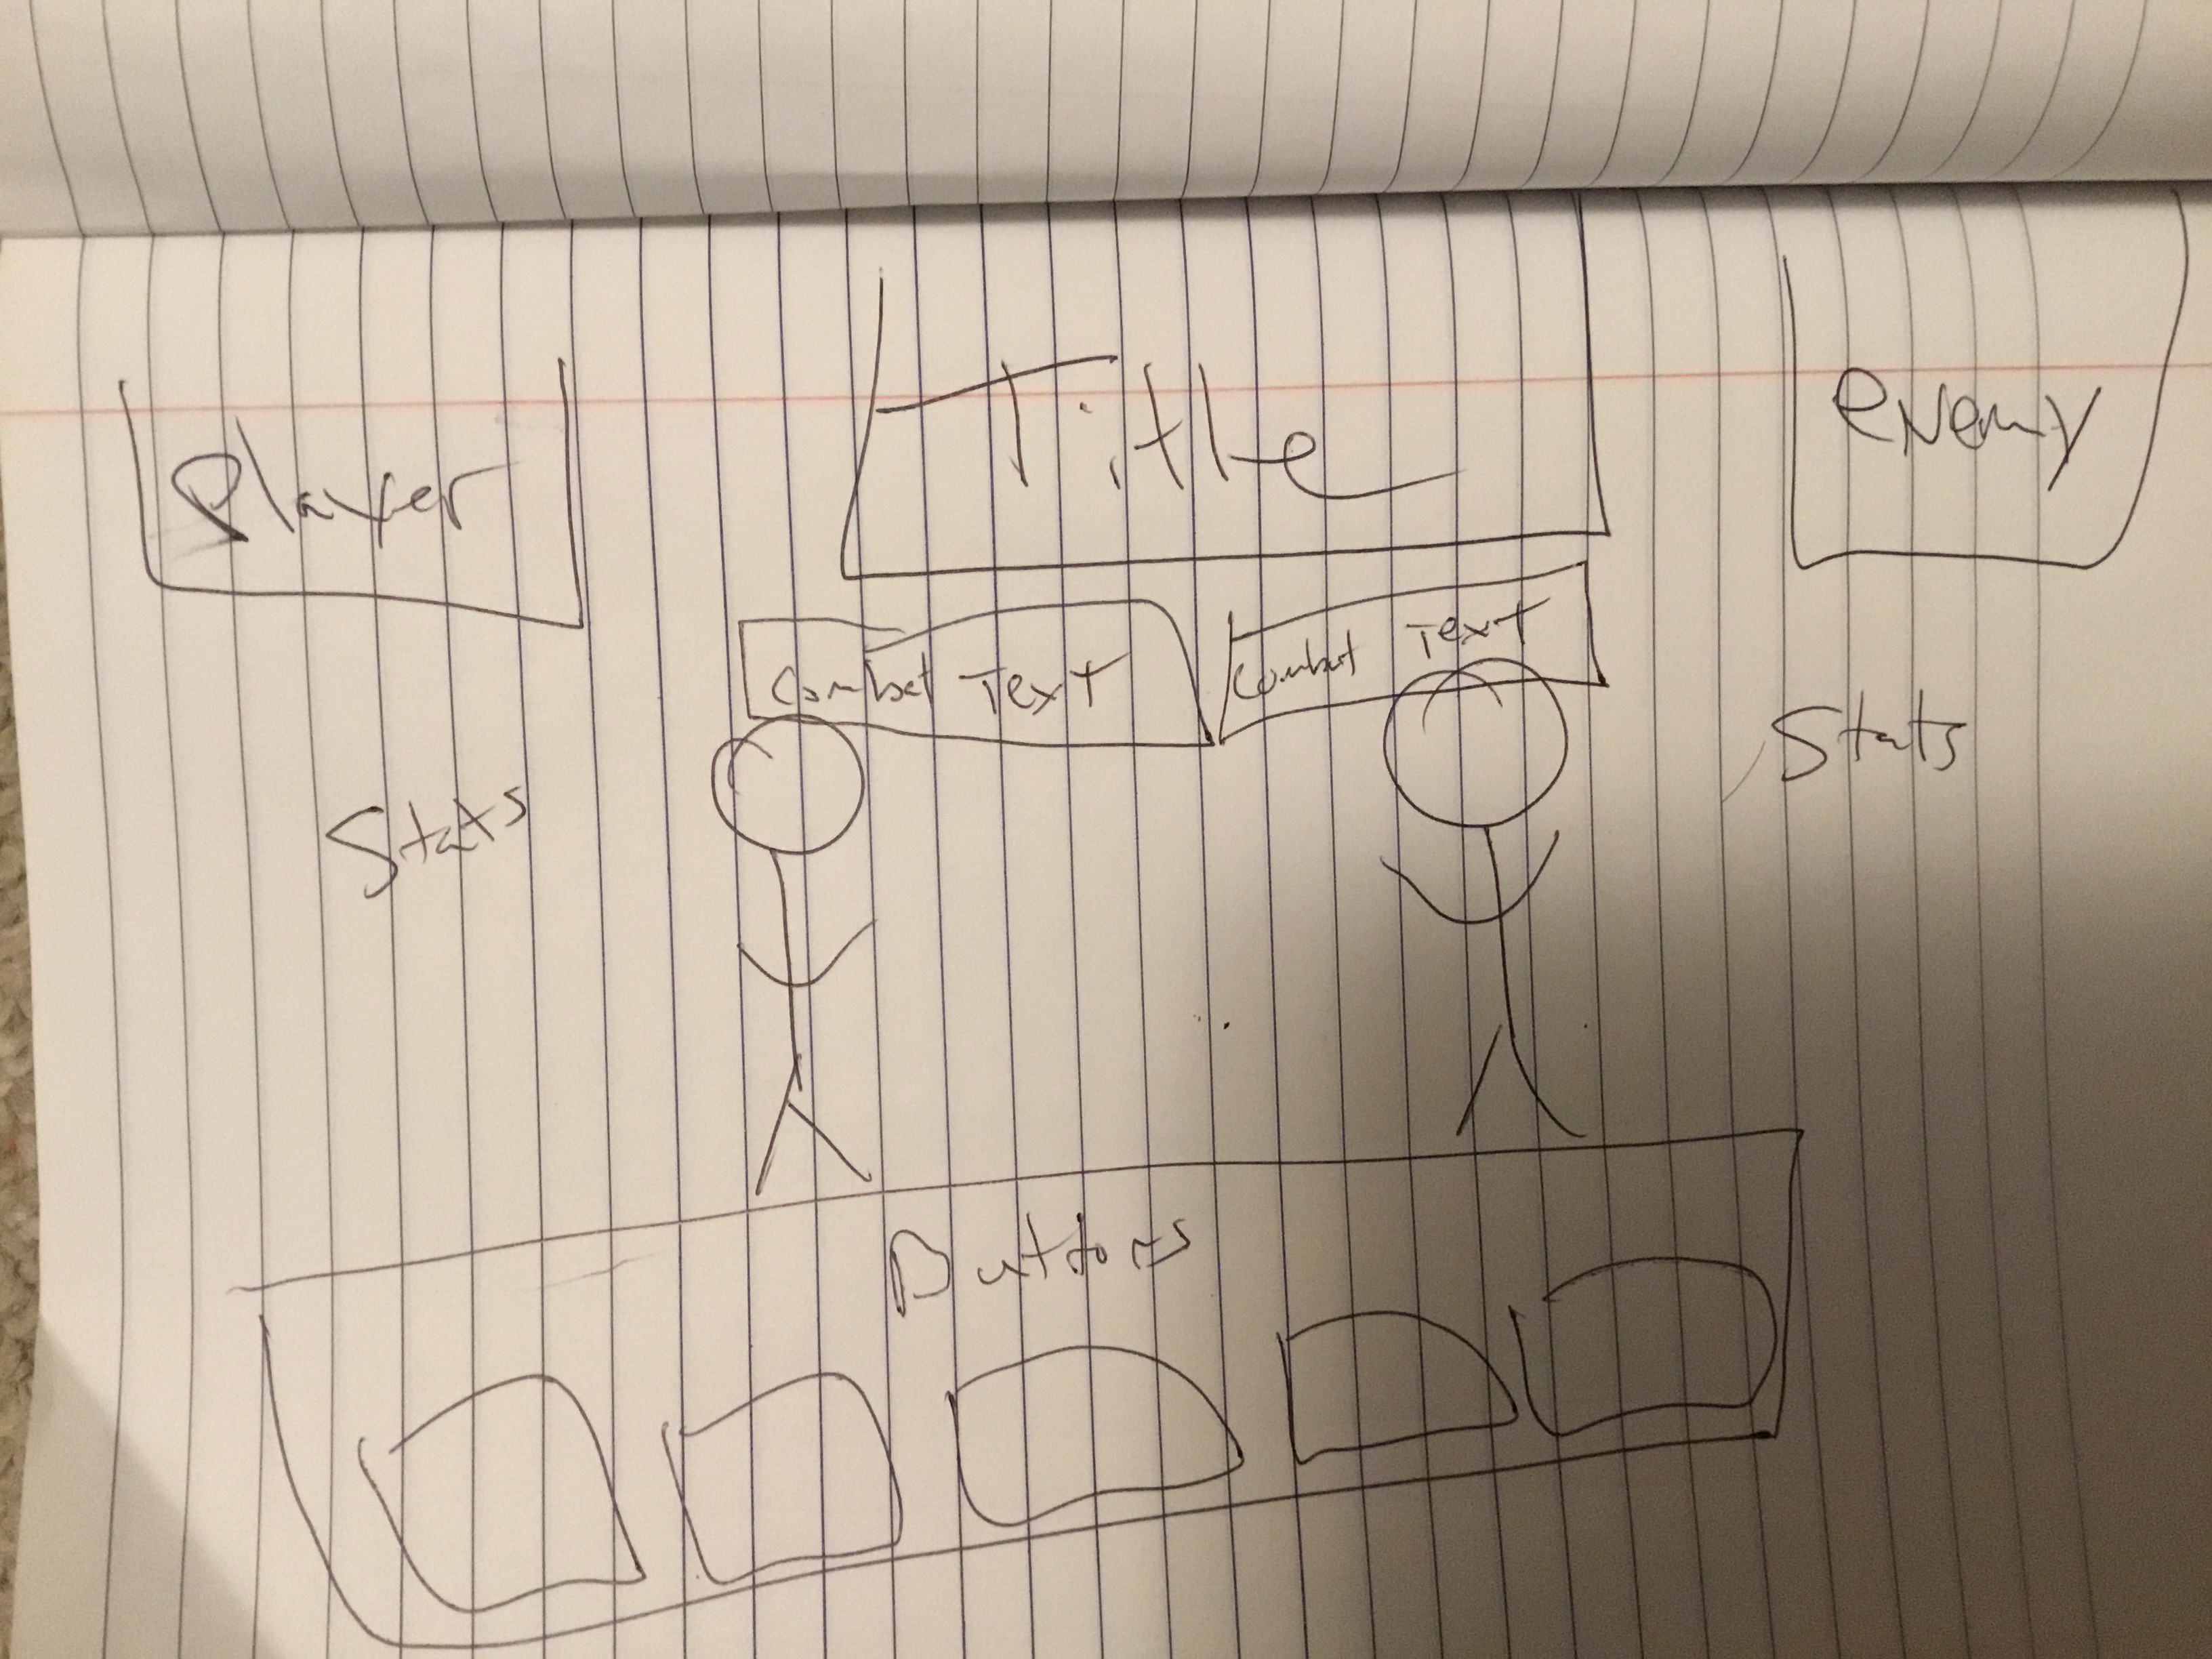 Player
Title
enemy
Combat Text
Combat Text
Stats
Stats
Buttons